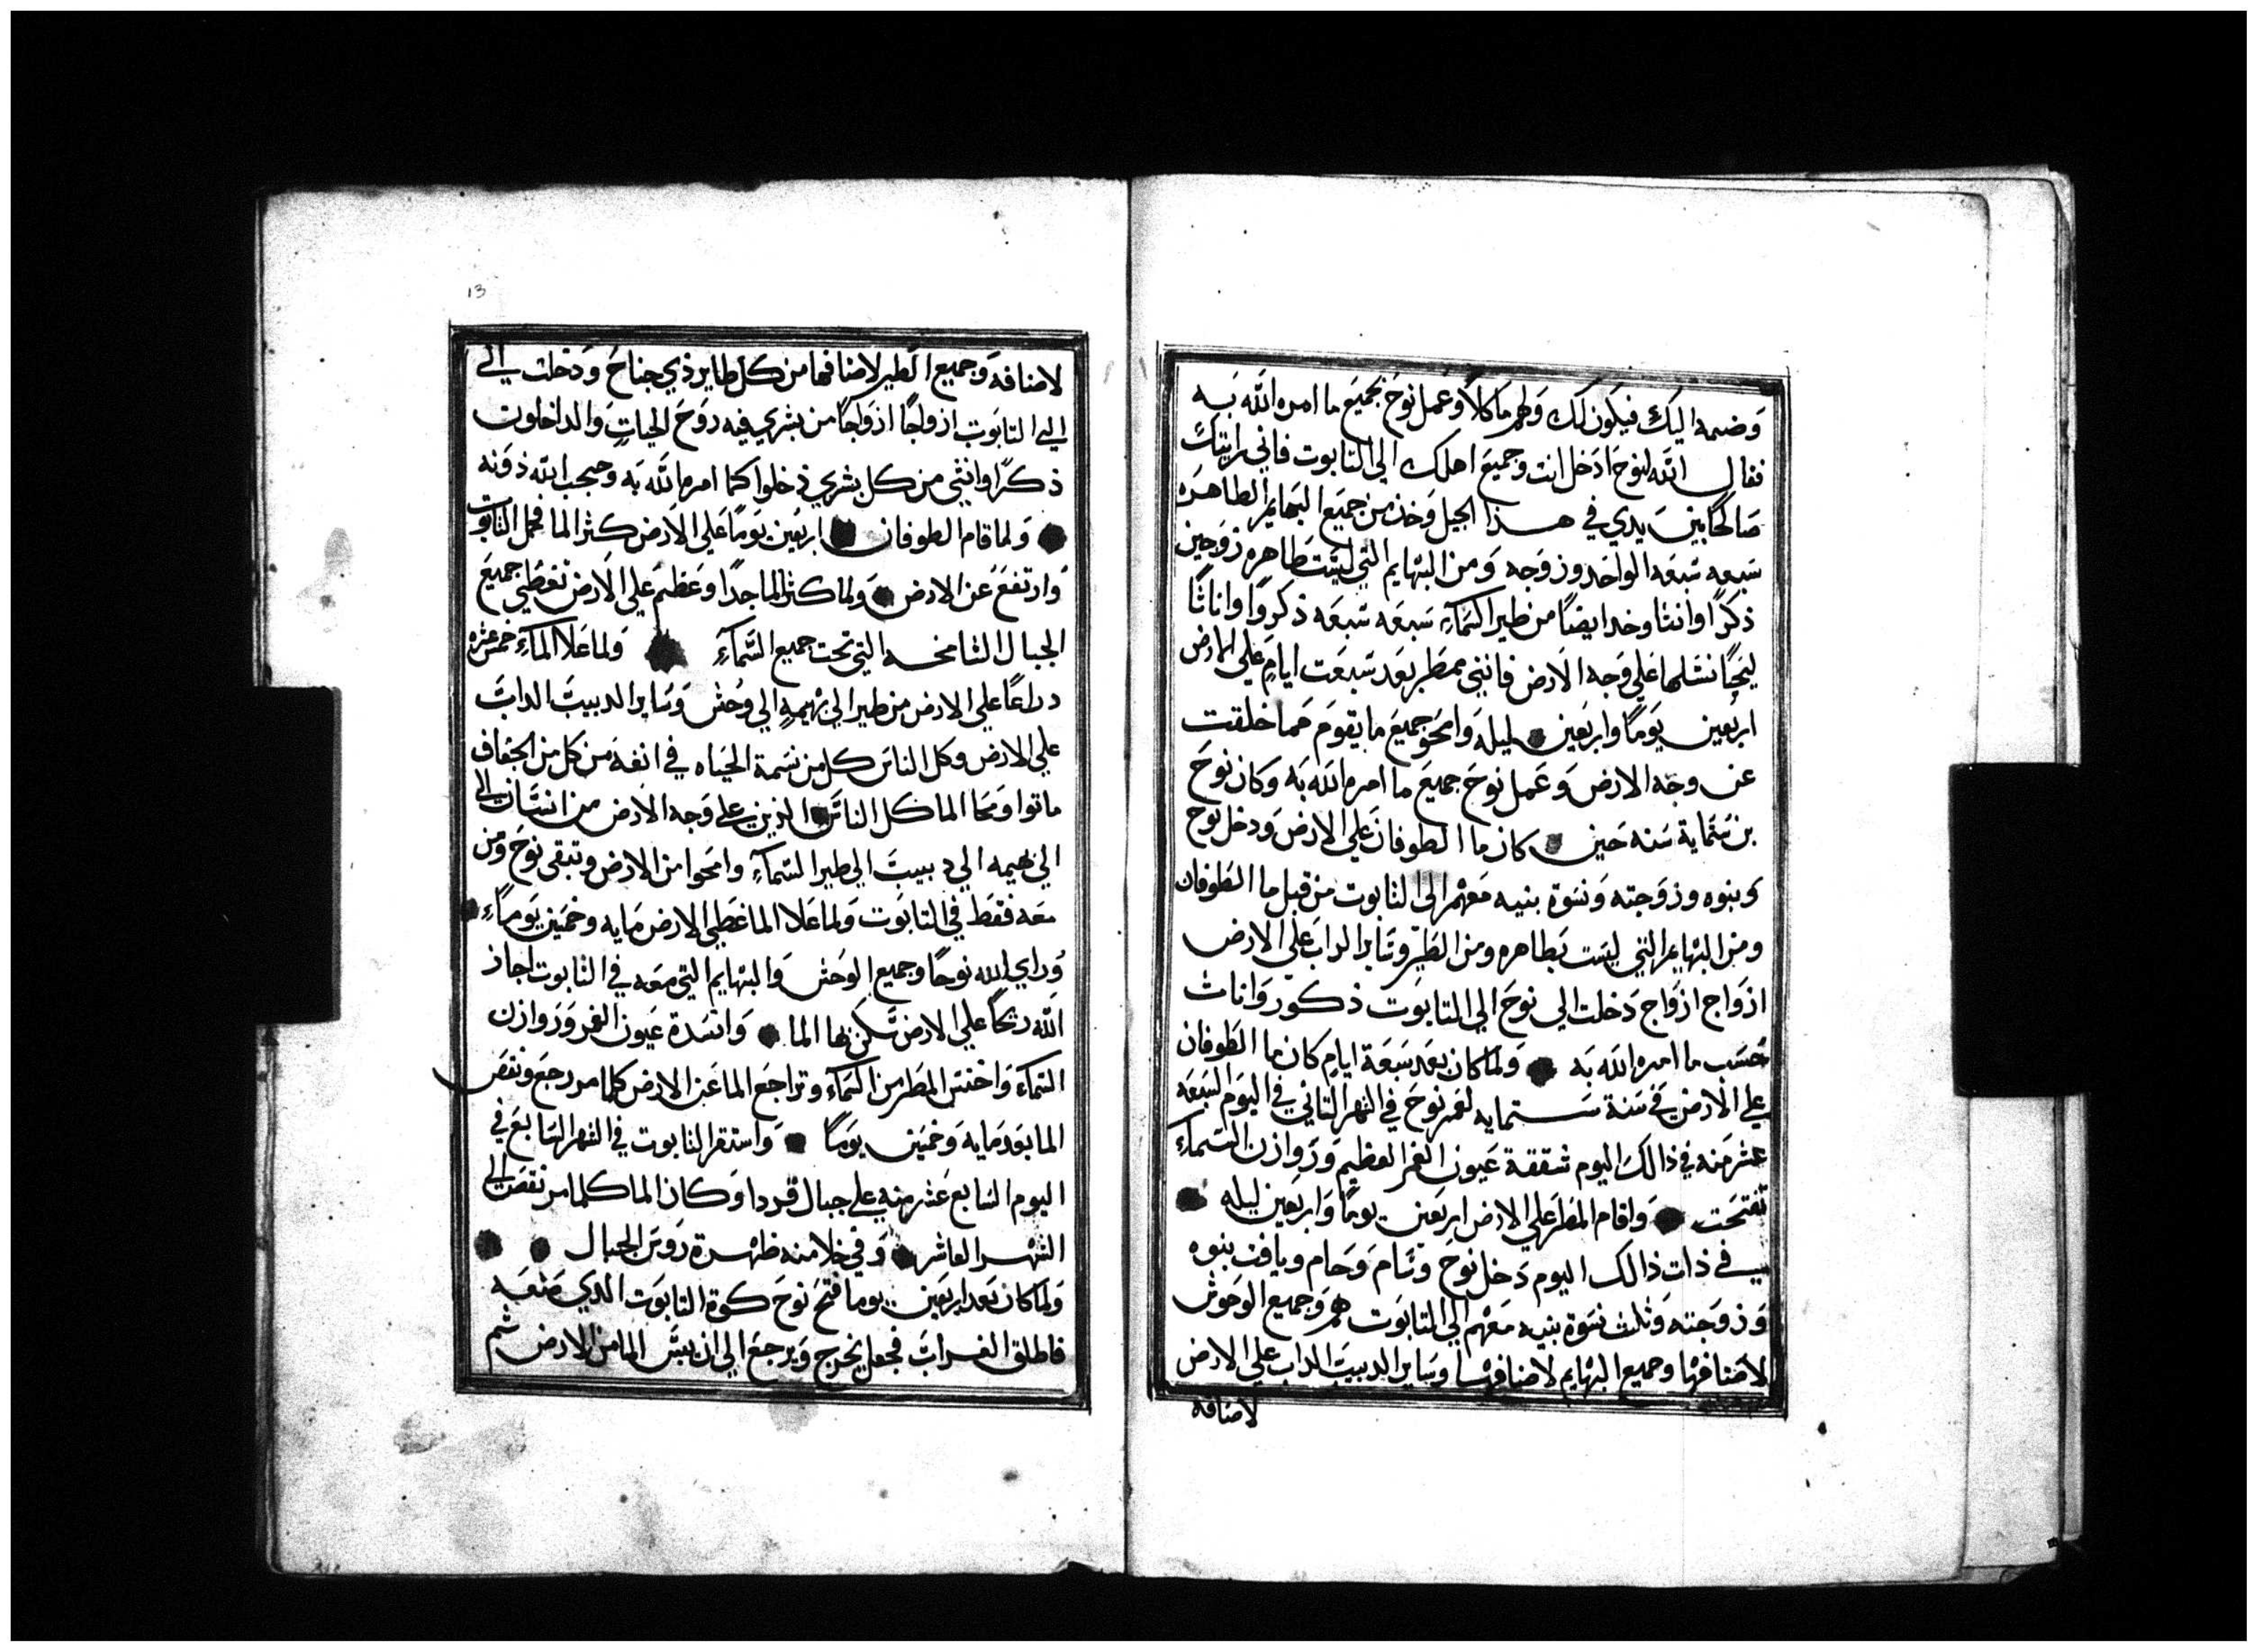 وَضمه اليَك فيكوَن لَك وَلهم مَاكلاً وعَمل نوحَ بجميعَ ما امره الله بَه
فقال الله لنوحَ ادَخل انت وجميعَ اهلك الي التابوت فاني رايتك
صَالحًا بين يَدي في هذا الجيل وَخذ من جميَع البَهايم الطاهرَه
سَبعه سَبعَه الواحَد وزوَجه وَمن البَهايم التي ليسَت طَاهره زوَجين
ذكرًا وانثا وخد ايضًا من طير السَمآءِ سَبعَه سَبعَه ذكروًا واناثًا
ليَحيًا نسَلها عَلي وَجه الاَرض فانني ممطَر بعَد سَبعَت ايامٍ عَلي الارض
اربَعين يَومًا واربَعين ليلة وَامحَو جميعَ ما يقومَ مَما خلقت
عن وجَه الارضَ وَعَمل نوحَ جميعَ ما امره الله بَه وَكان نوحَ
بن سَتمَاية سَنه حَين كان ما الطوفانَ عَلي الارضَ ودخل نوح
وبنوه وزوَجته وَنسَوة بنيه مَعَهم الي التابوت من قبل ما الطَوفان
ومن البَهايم التي ليسَت بَطاهره ومن الطَير وسَاير الدابَ عَلي الارض
ازوَاج ازوَاج دَخلت الي نوحَ الي التابوَت ذكورَ وَاناث
حَسَب ما امره الله بَه وَلما كان بعَد سَبَعَة ايامٍ كان ما الطَوفان
علي الاَرضَ في سَنة سَتمايه لعَمر نوحَ في الشهر الثاني في اليوَم السَبعَه
عَشر مَنه في ذالك اليوم شققة عَيون الغمر العَظيم وَرَوازن السَمآء
تفتحَت وَاقام المَطَر عَلي الارض اربَعين يومًا وَاربَعين ليله
في ذات ذالك اليوم دَخل نوحَ وسَام وَحَام ويافت بنوه
وَزوَجته وَثلث نسَوة بنيه مَعَهم الي التابوَت هم وَجميعَ الوَحَوش
لاصَنافهَا وجميع البَهايم لاصَنافهَا وسَاير الدبيبَ الدابَ عَلي الارض
لاصَنافه
13
لاصنافه وَجميع الَطير لاصنافها من كل طاير ذي جناحَ وَدَخلت الي
الي التابوَت ازواجًا ازوَاجًا من بشري فيه روَحَ الحَياتِ وَالداخلون
ذكرًا وانثي من كل بشري دخلوا كما امره الله بَه وحجب الله دَونه
وَلما قام الطوفان اربعين يَومًا عَلي الاَرض كثر الما فحَمل التابوت
وَارتفعَ عَن الارض وَلما كثر الما جدًا وعَظمَ عَلي الاَرض تغطي جميعَ
الجبال الشامخه التي تحت جميع السَمآءِ وَلما عَلا المآء خمَس عَشره
دراعًا عَلي الارض من طير الي بهَيمهٍ الي وحُش وَسَاير الدبيبَ الدابَ
علي الارض وكل الناسَ كل من نسَمة الحَياه في انفهَ من كل من الجَفاف
ماتوا وَمحَا الما كل الناسَ الذين علي وَجه الاَرض من انسَان الي
الي بهَيمه الي دبيبَ الي طير السَمآءِ وامحَوا من الارض وتبَقي نوحَ ومن
مَعَه فقط في التابوَت وَلما عَلا الما غطَي الارض مَايه وخَمَين يَومًاء
وَراي الله نوحًا وجميع الوحَش وَالبهَايم التي مَعَه في التابوت اجاز
الله ريحًا عَلي الارض تسَكن بها الما وَانسَدة عَيون الغمر وَرَوازن
السَمآء وَاحَتبسَ المطَر من السَمآءِ وتراجعَ الما عَن الارض كلما مر رجعَ ونقصَ
الما بعَد مَايه وَخمسَين يومًا وَاستقر التابوت في الشهر السَابعَ في
اليوم السَابع عَشر منه علي جبال قردا وَكان الما كلما مر نقصَ الي
الشهر العَاشر وَفي خلا منه ظهَرة رَوسَ الجبال
وَلما كان بعَد اربعَين يوما فتحَ نوحَ كوة التابوَت الدي صَنعَه
فاطلق الغرابَ فجعَل يخرج وَيرجعَ الي ان يبسَ الما من الارض ثم